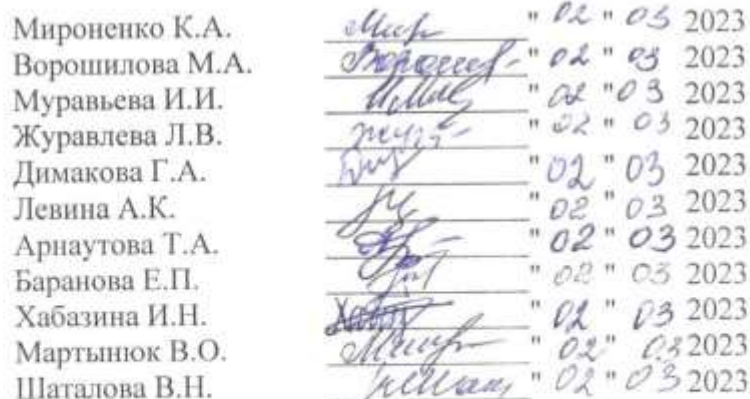 Мироненко К.А. "02" 03 2023
Ворошилова М.А. "02" 03 2023
Муравьева И.И. "02" 03 2023
Журавлева Л.В. "02" 03 2023
Димакова Г.А. "02" 03 2023
Левина А.К. "02" 03 2023
Арнаутова Т.А. "02" 03 2023
Баранова Е.П. "02" 03 2023
Хабазина И.Н. "02" 03 2023
Мартынюк В.О. "02" 03 2023
Шаталова В.Н. "02" 03 2023